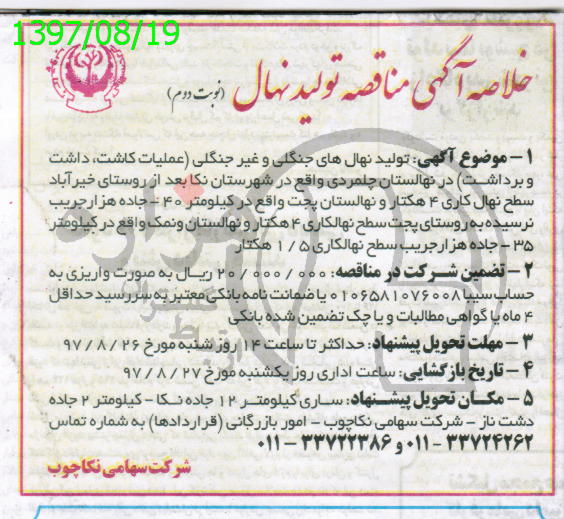 1397/08/19
خلاصه آگهی مناقصه تولید نهال (نوبت دوم)
۱ – موضوع آگهی: تولید نهال های جنگلی و غیر جنگلی (عملیات کاشت، داشت
و برداشت) در نهالستان چلمردی واقع در شهرستان نکا بعد از روستای خیرآباد
سطح نهال کاری ۴ هکتار و نهالستان پجت واقع در کیلومتر ۴۰ – جاده هزارجریب
نرسیده به روستای پجت سطح نهالکاری ۴ هکتار و نهالستان ونمک واقع در کیلومتر
۳۵ – جاده هزارجریب سطح نهالکاری ۱/۵ هکتار
۲ – تضمین شرکت در مناقصه: ۲۰/۰۰۰/۰۰۰ ریال به صورت واریزی به
حساب سیبا ۰۱۰۶۵۸۱۰۷۶۰۰۸ یا ضمانت نامه بانکی معتبر به سررسید حداقل
۴ ماه یا گواهی مطالبات و یا چک تضمین شده بانکی
۳ – مهلت تحویل پیشنهاد: حداکثر تا ساعت ۱۴ روز شنبه مورخ ۹۷/۸/۲۶
۴ – تاریخ بازگشایی: ساعت اداری روز یکشنبه مورخ ۹۷/۸/۲۷
۵ – مکان تحویل پیشنهاد: ساری کیلومتر ۱۲ جاده نکا – کیلومتر ۲ جاده
دشت ناز – شرکت سهامی نکاچوب – امور بازرگانی (قراردادها) به شماره تماس
۳۳۷۲۴۲۶۲ – ۰۱۱ و ۳۳۷۲۲۳۸۶ – ۰۱۱
شرکت سهامی نکاچوب
هزاره